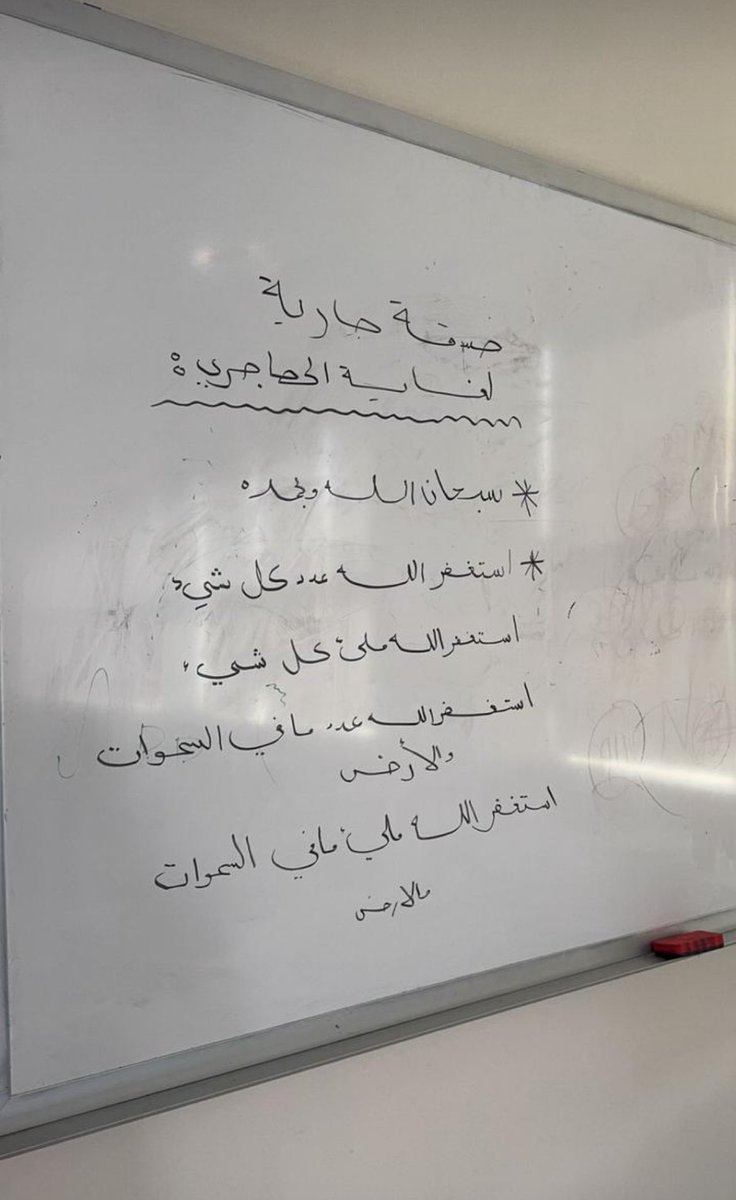 صدقة جارية
لغاية الحاجري :
* سبحان الله وبحمده
* استغفر الله عدد كل شيء
استغفر الله ملئ كل شيء
استغفر الله عدد ما في السموات
والأرض
استغفر الله ملئ ما في السموات
والارض